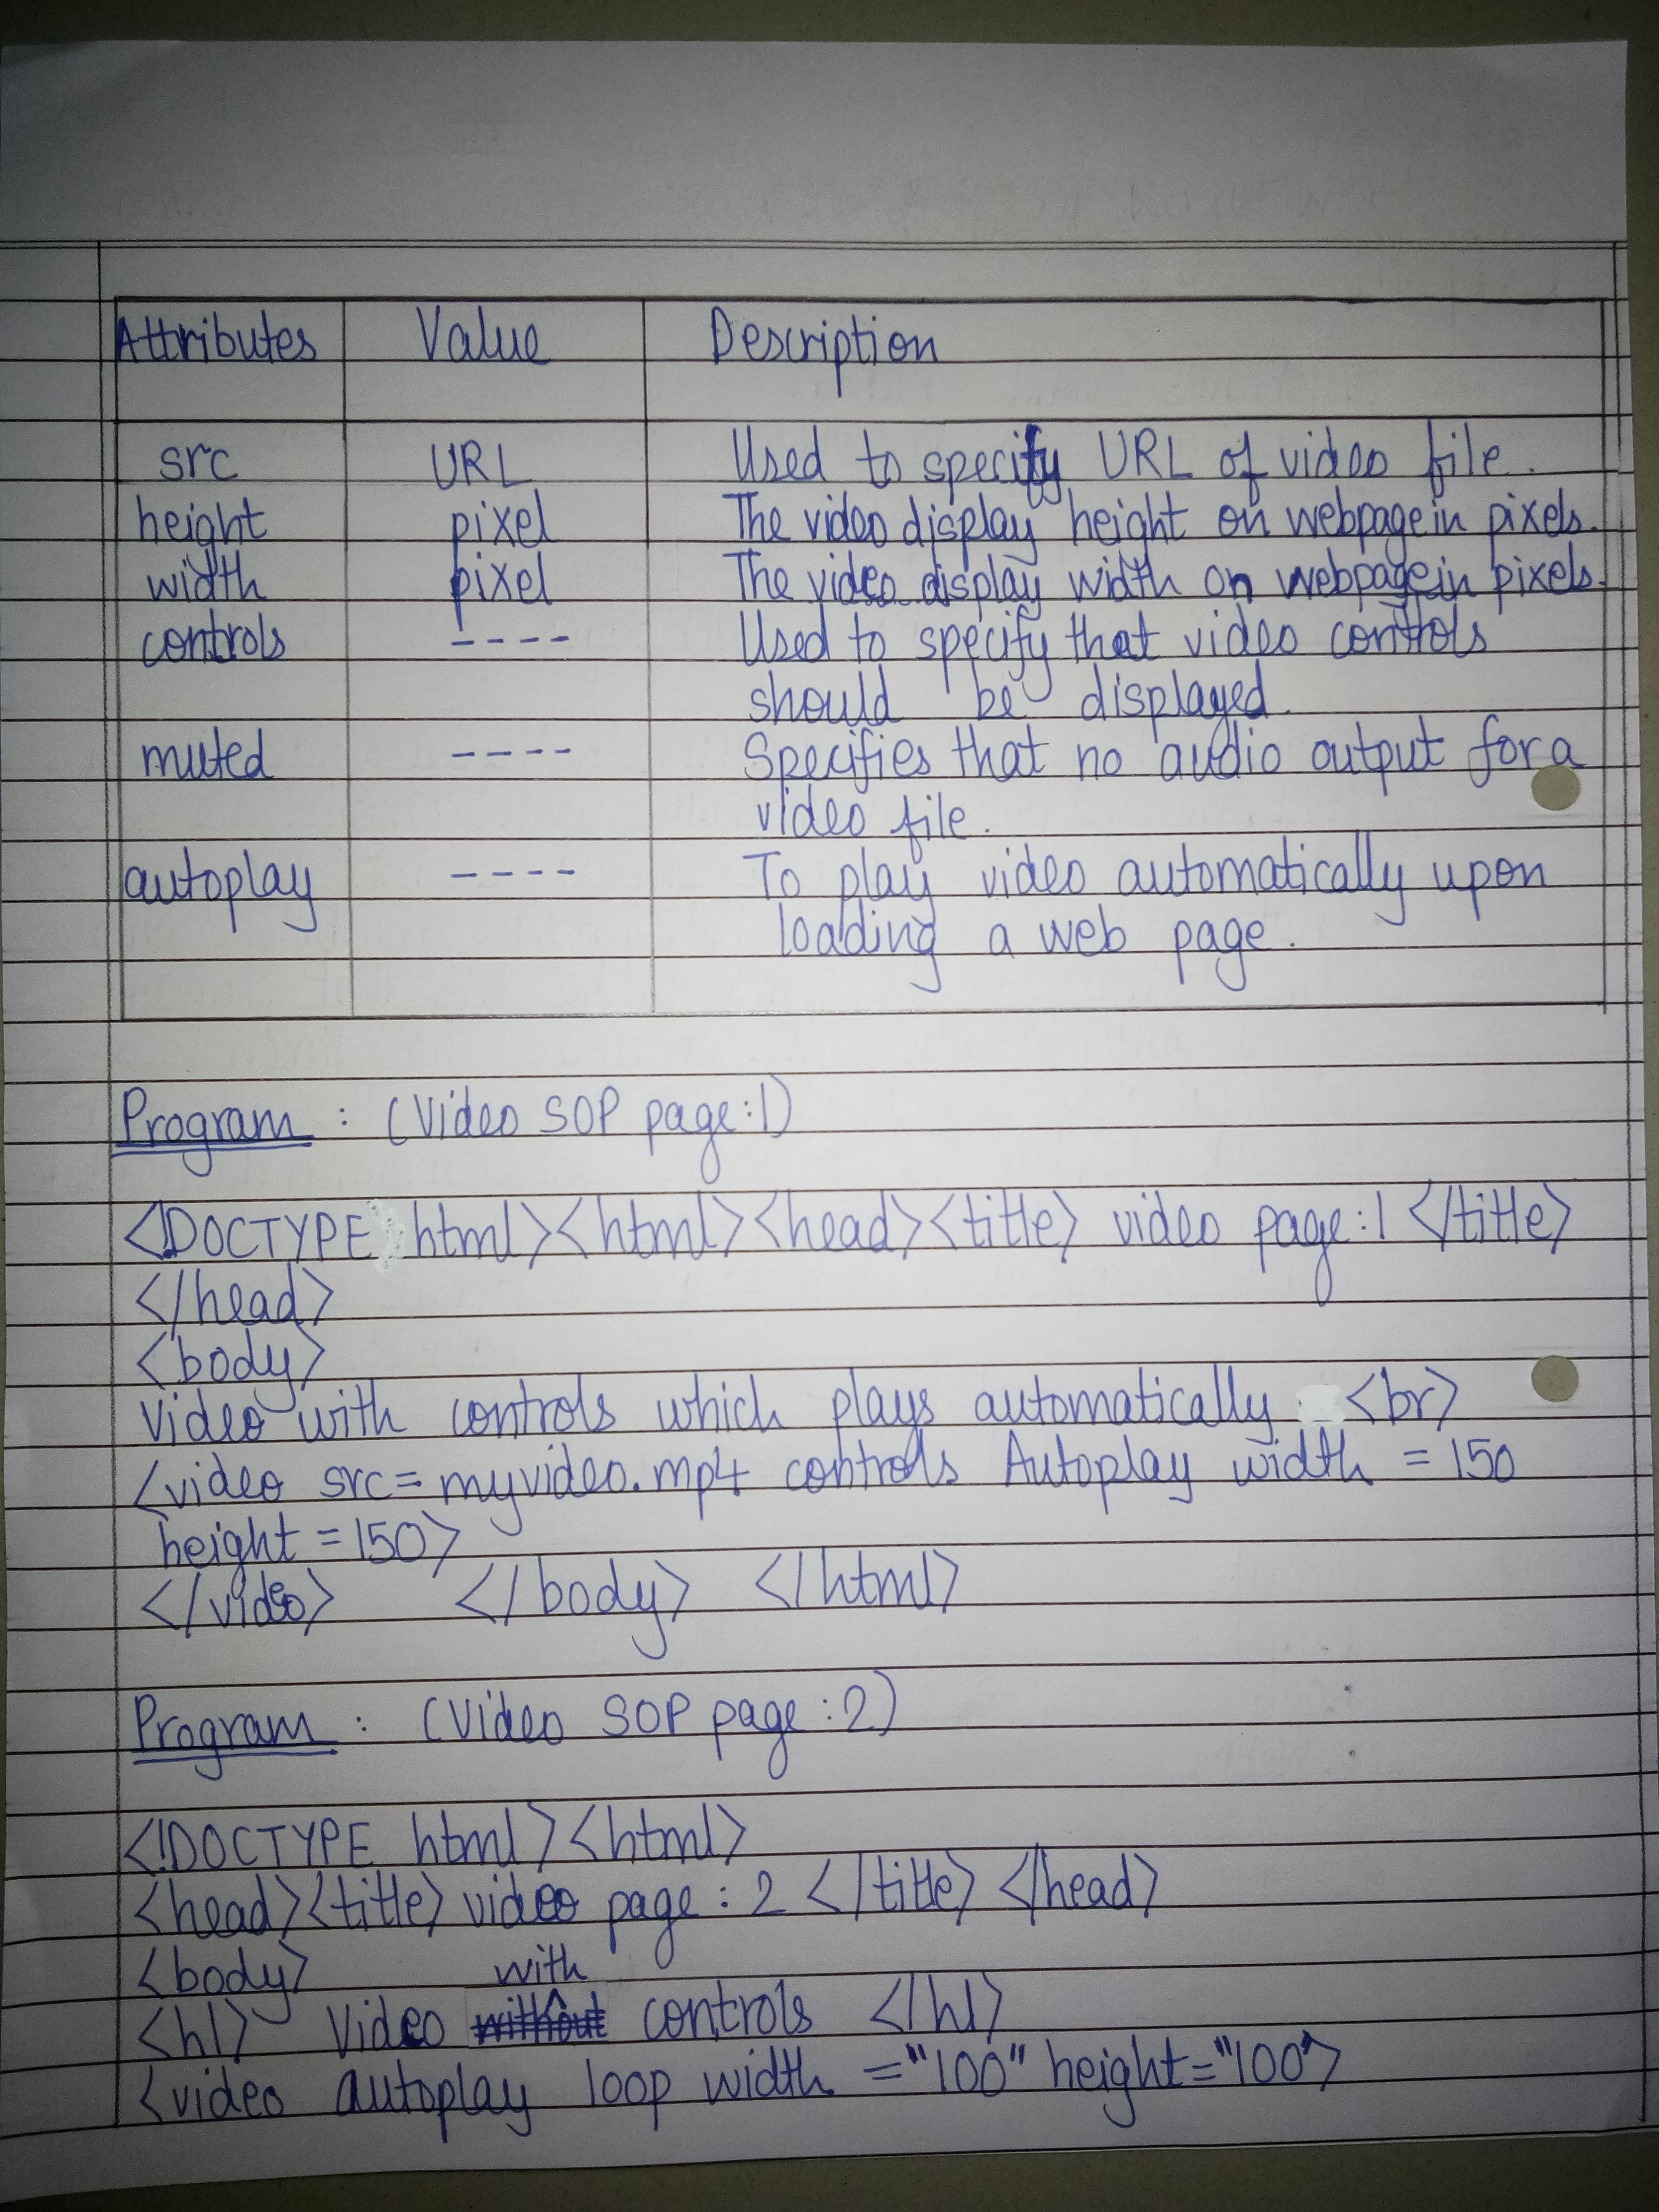 Attributes Value Description
src URL Used to specify URL of video file.
height pixel The video display height on webpage in pixels.
width pixel The video display width on webpage in pixels.
controls ---- Used to specify that video controls
should be displayed.
muted ---- Specifies that no audio output for a
video file.
autoplay ---- To play video automatically upon
loading a web page.
Program : (Video SOP page:1)
<!DOCTYPE html><html><head><title> video page:1 </title>
</head>
<body>
video with controls which plays automatically <br>
<video src=myvideo.mp4 controls Autoplay width = 150
height = 150>
</video> </body> </html>
Program : (Video SOP page:2)
<!DOCTYPE html><html>
<head><title> video page : 2 </title> </head>
<body>
with
<h1> Video without controls </h1>
<video autoplay loop width ="100" height="100">